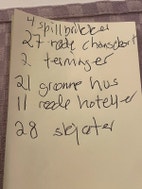 4 spillbrikker
27 røde chansekort
2 terninger
21 grønne hus
11 røde hoteller
28 skjøter